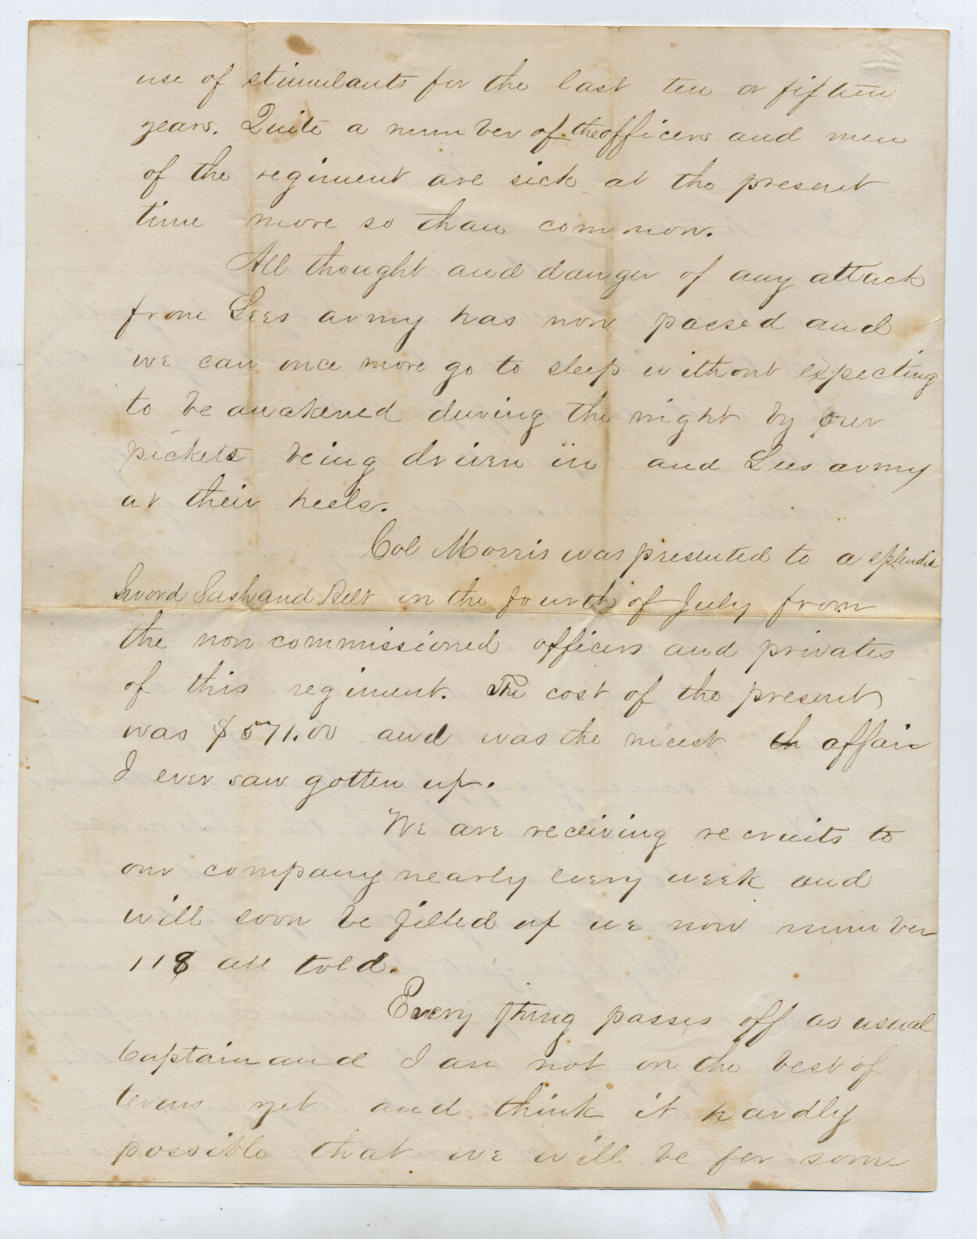 use of stimulants for the last ten or fifteen
years. Quite a number of the officers and men
of the regiment are sick at the present
time more so than common.
All thought and danger of any attack
from Lees army has now passed and
we can once more go to sleep without expecting
to be awakened during the night by our
pickets being driven in and Lees army
at their heels.
Col Morris was presented to a splendid
Sword Sash and Belt on the fourth of July from
the non commissioned officers and privates
of this regiment. The cost of the present
was $571.00 and was the nicest affair
I ever saw gotten up.
We are receiving recruits to
our company nearly every week and
will soon be filled up we now number
118 all told.
Every thing passes off as usual
Captain and I are not on the best of
terms yet and think it hardly
possible that we will be for some